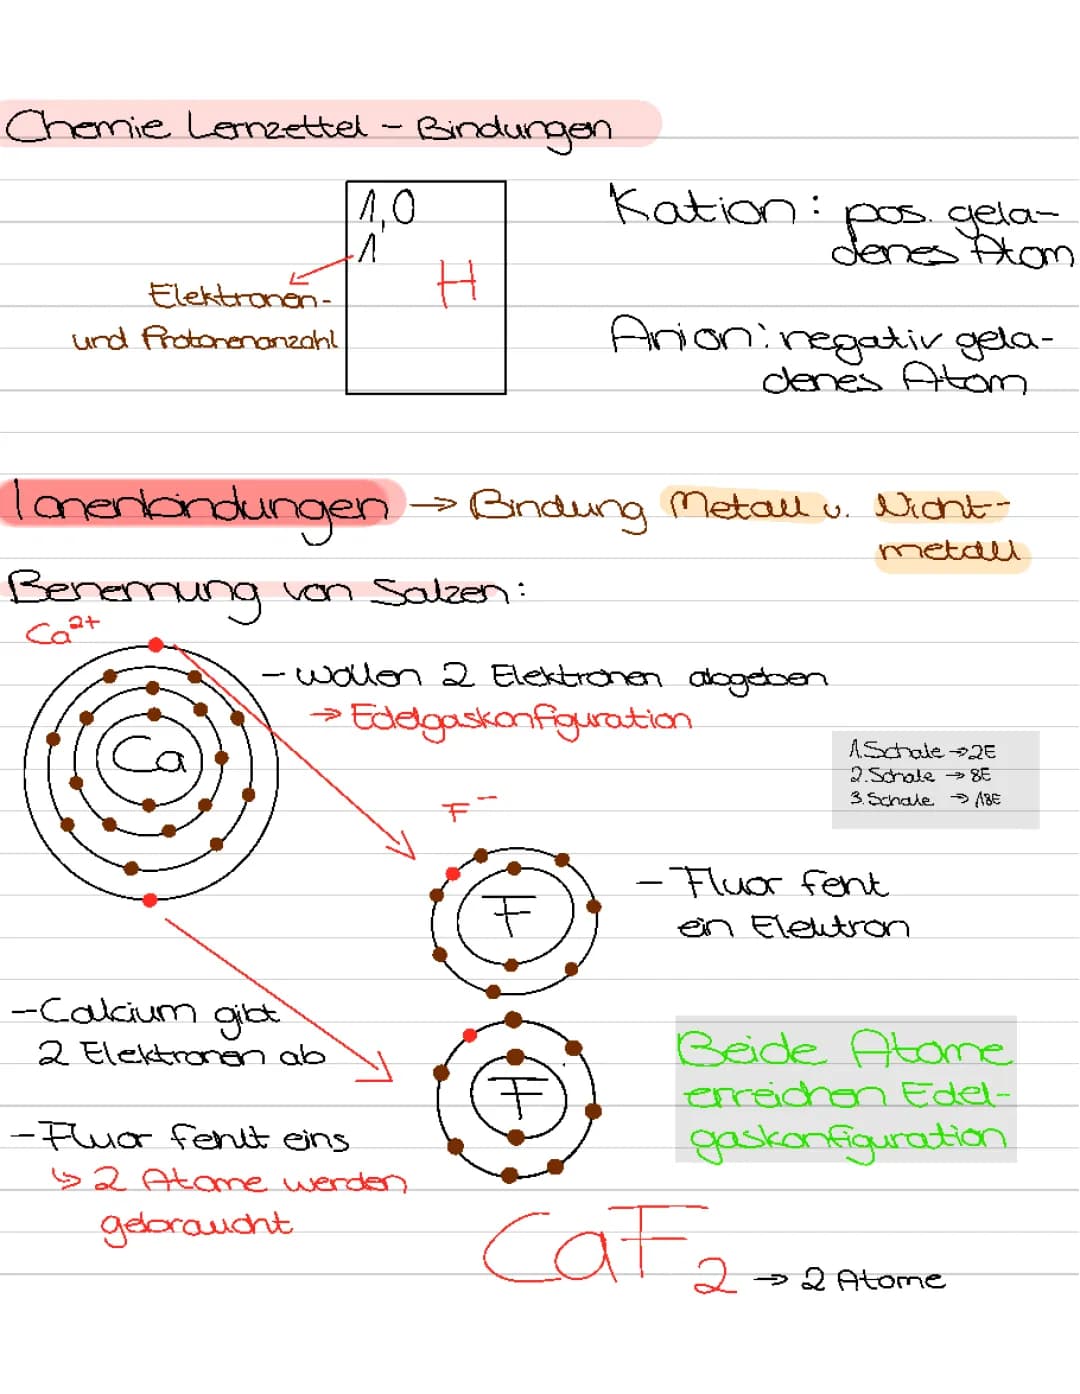 Chemie Lernzettel - Bindungen
1,0
1
H
Elektronen-
und Protonenanzahl
Kation: pos. gela-
denes Atom
Anion: negativ gela-
denes Atom
Ionenbindungen → Bindung Metall u. Nicht-
metall
Benennung von Salzen:
Ca²⁺
- wollen 2 Elektronen abgeben
→ Edelgaskonfiguration
Ca
1.Schale → 2E
2.Schale → 8E
3.Schale → 18E
F⁻
F
- Fluor fehlt
ein Elektron
- Calcium gibt
2 Elektronen ab
F
Beide Atome
erreichen Edel-
gaskonfiguration
- Fluor fehlt eins
↳ 2 Atome werden
gebraucht
CaF₂ → 2 Atome